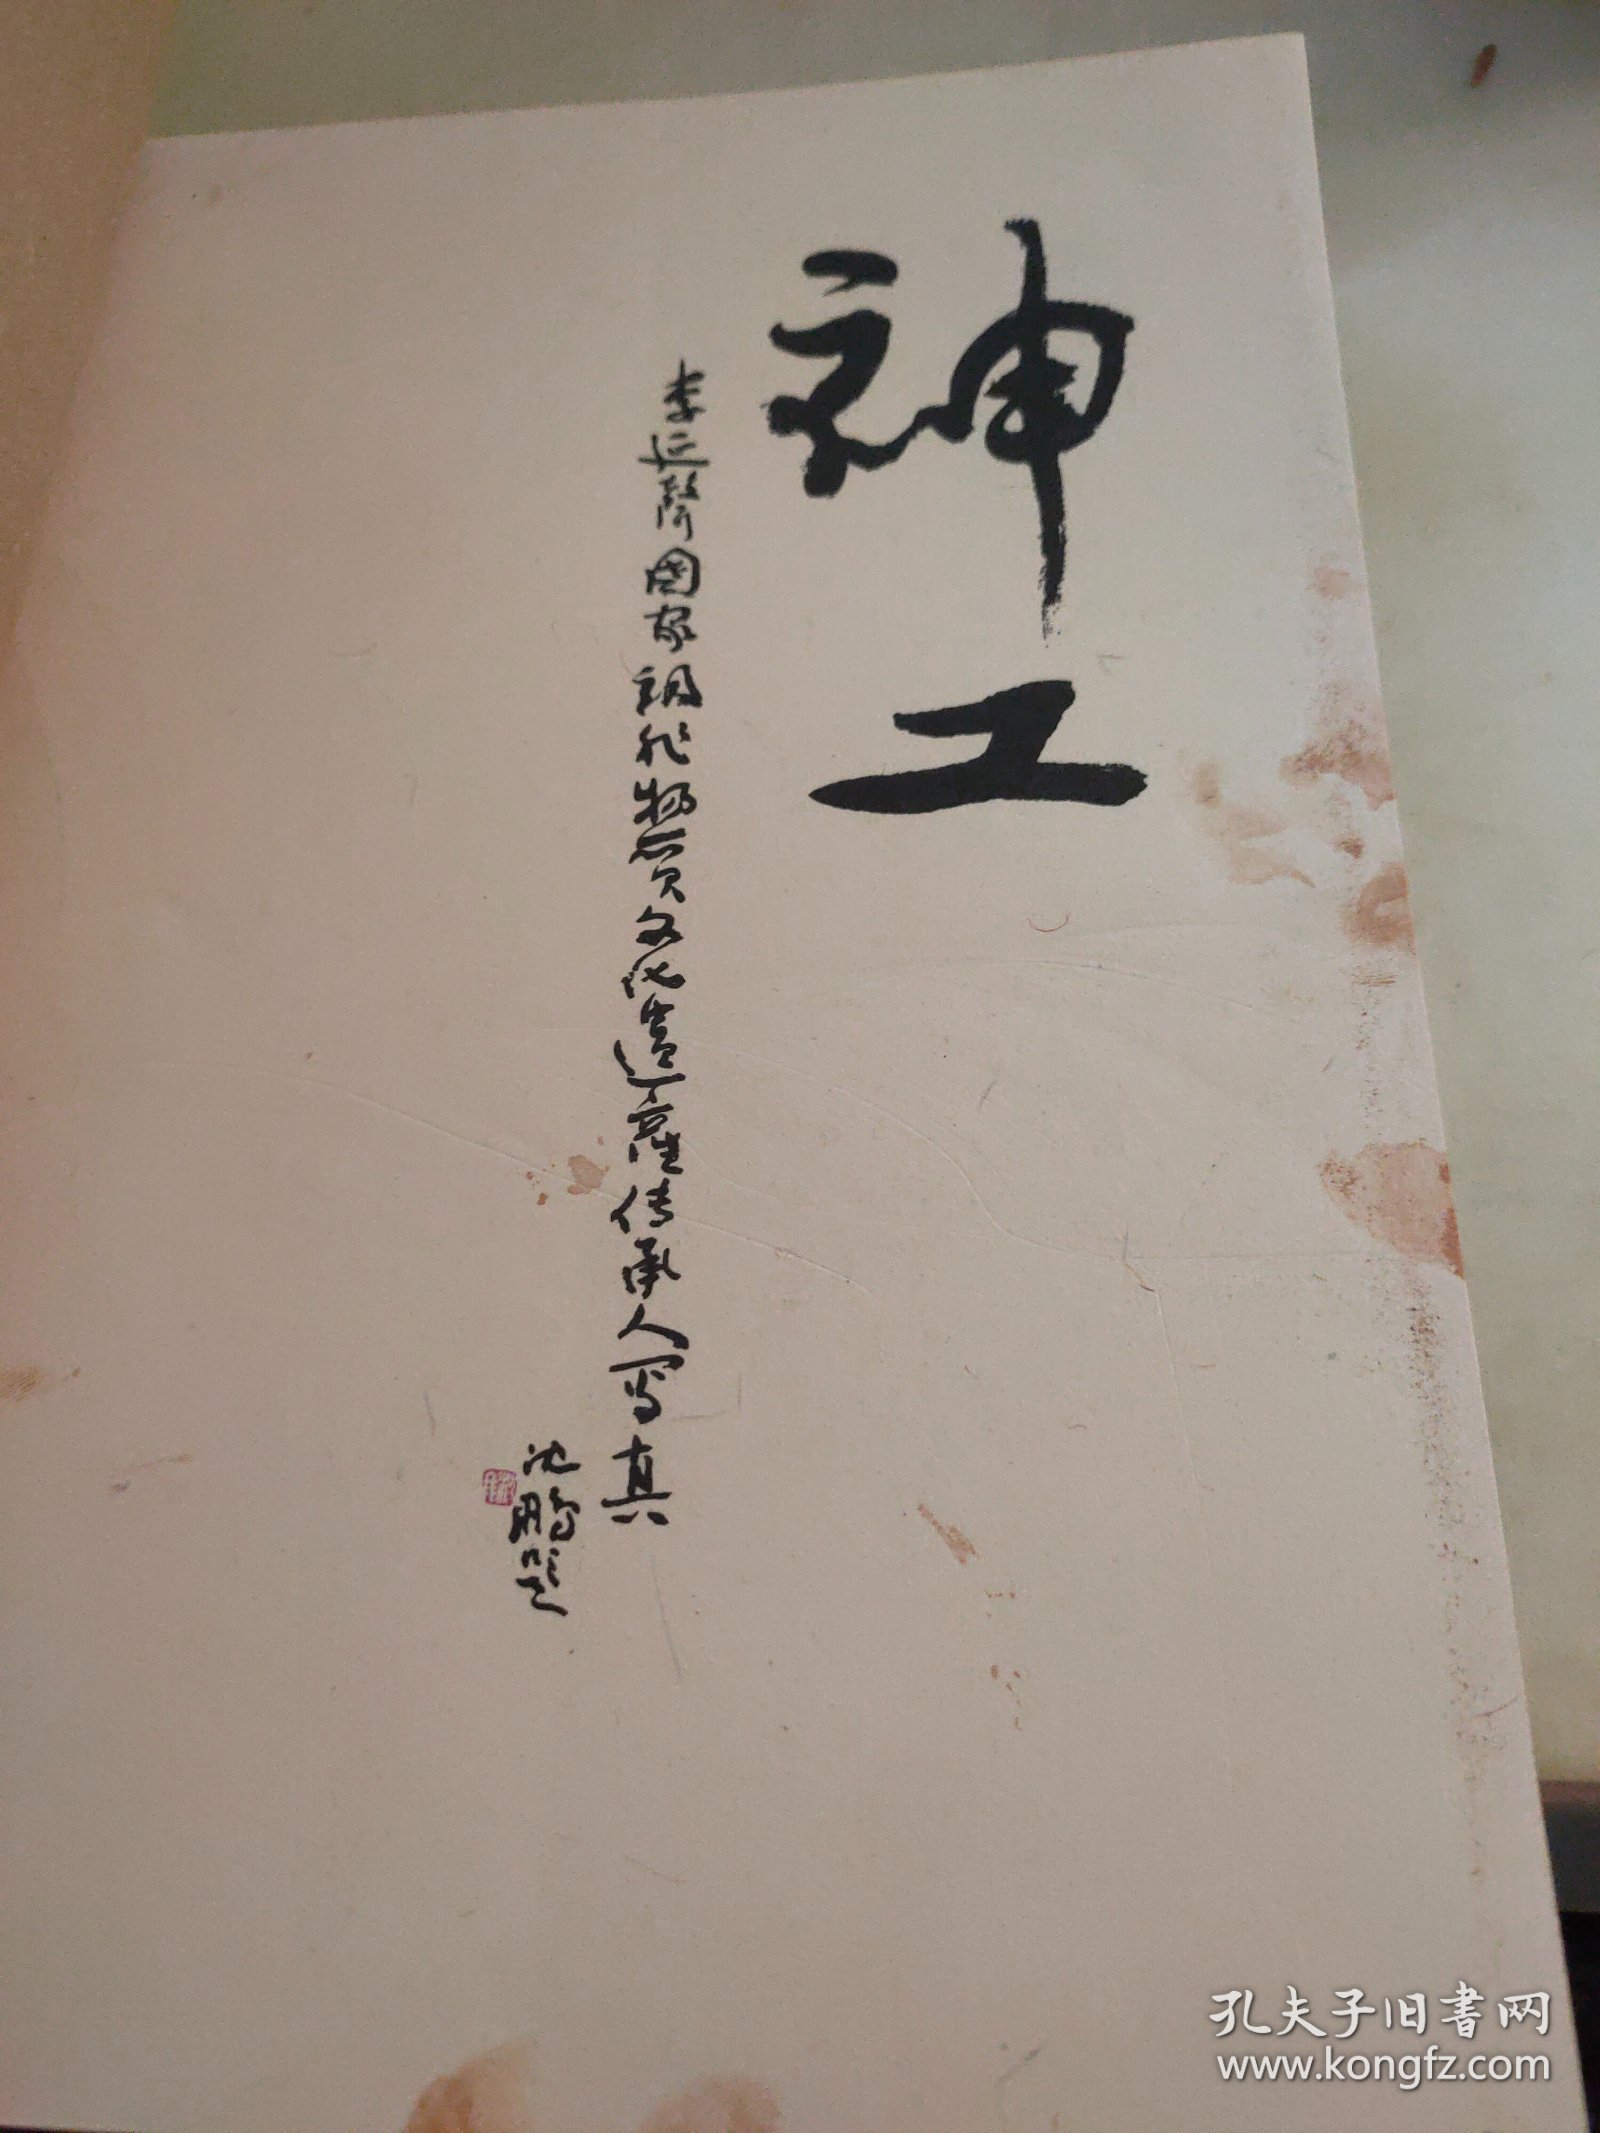 神工
李延声国家级非物质文化遗产传承人写真
沈鹏题
孔夫子旧书网
www.kongfz.com